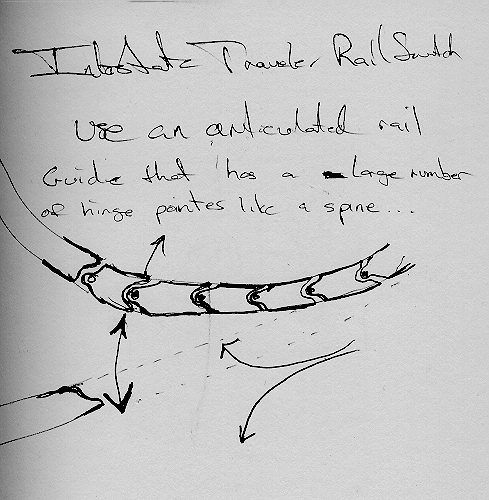 Interstate Traveler Rail Switch
Use an articulated rail
Guide that has a large number
of hinge pointes like a spine...